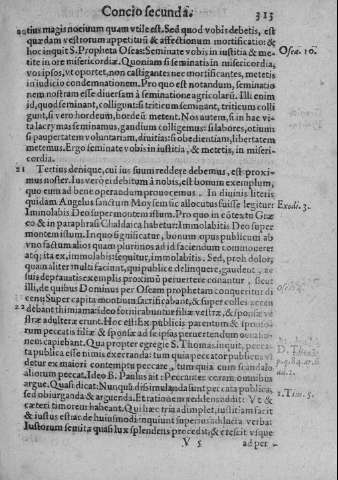 Concio secunda. 313
tius magis nociuum quam vtile est. Sed quod vobis debetis, est
quædam vestrorum appetituũ & affectionum mortificatio: &
hoc inquit S. Propheta Oseas: Seminate vobis in iustitia & me- Osea. 10.
tite in ore misericordiæ. Quoniam si seminatis in misericordia,
vos ipsos, vt oportet, non castigantes nec mortificantes, metetis
in iudicio condemnationem. Pro quo est notandum, seminatio
nem nostram esse diuersam à seminatione agricolarũ. Illi enim
id, quod seminant, colligunt: si triticum seminant, triticum colli
gunt, si vero hordeum, hordeũ metent. Nos autem, si in hac vi-
ta lacrymas seminamus, gaudium colligemus: si labores, otium:
si paupertatem voluntariam, diuitias: si obedientiam, libertatem
metemus. Ergo seminate vobis in iustitia, & metetis, in miseri-
cordia.
21 Tertius denique, cui ius suum reddere debemus, est proxi-
mus noster. Ius verò ei debitum à nobis, est bonum exemplum,
quo eum ad bene operandum prouocemus. In diuinis literis
quidam Angelus sanctum Moysem sic allocutus fuisse legitur: Exodi. 3.
Immolabis Deo super montem istum. Pro quo in cõtextu Græ
co & in paraphrasi Chaldaica habetur: Immolabitis Deo super
montem istum. In quo significatur, bonum opus publicum ab
vno factum alios quam plurimos ad id faciendum commouere
atq; ita ex, immolabis: sequitur, immolabitis. Sed, proh dolor,
quam aliter multi faciunt, qui publice delinquere, gaudent,
suis deprauatis exemplis proximũ peruertere conantur, sicut
illi, de quibus Dominus per Oseam prophetam conqueritur di
cens: Super capita montium sacrificabant, & super colles accen
22 debant thimiama: ideo fornicabuntur filiæ vestræ, & sponsæ ve
stræ adulteræ erunt. Hoc est: Ex publicis parentum & sponso-
rum peccatis filiæ & sponsæ ad se ipsas peruertendum occasio-
nem capiebant. Qua propter egregie S. Thomas inquit, pecca-
ta publica esse nimis execranda: tum quia peccator publicus vi
detur ex maiori contemptu peccare, tum quia cum scandalo
aliorum peccat. Ideo B. Paulus ait: Peccantes coram omnibus
argue. Quasi dicat: Nunquã dissimulanda sunt peccata publica,
sed obiurganda & arguenda. Et rationem reddens addit: Vt & 1. Tim. 5.
cæteri timorem habeant. Qui hæc tria adimplet, iustitiam facit
& iustus est: ac de huiusmodi inquiunt superius adducta verba:
Iustorum semita quasi lux splendens procedit, & crescit vsque
V 5 ad per-